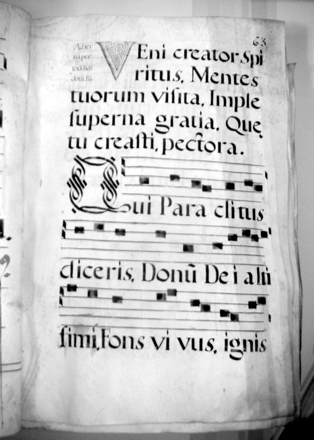 63
VEni creator Spi
ritus, Mentes
tuorum visita, Imple
superna gratia, Que
tu creasti, pectora.
Qui Para clitus
diceris, Donũ De i alti
simi, Fons vi vus, ignis